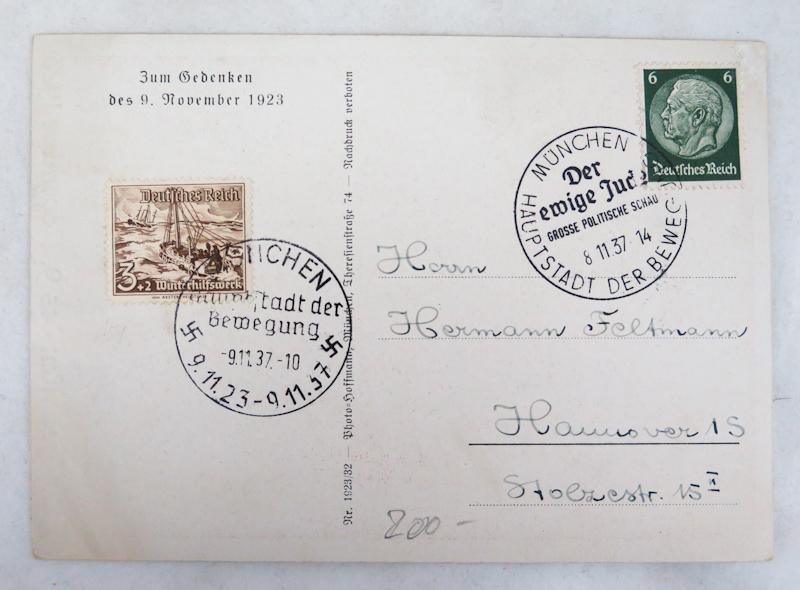 Zum Gedenken
des 9. November 1923
Deutsches Reich
3+2 Winterhilfswerk
MÜNCHEN
Hauptstadt der
Bewegung
-9.11.37.-10
9.11.23-9.11.37
Nr. 1923/32 — Photo-Hoffmann, München, Theresienstraße 74 — Nachdruck verboten
6 6
Deutsches Reich
MÜNCHEN
Der
ewige Jude
GROSSE POLITISCHE SCHAU
8.11.37.14
HAUPTSTADT DER BEWEG
Herrn
Hermann Feltmann
Hannover 1S
Stolzestr. 15 II
200-